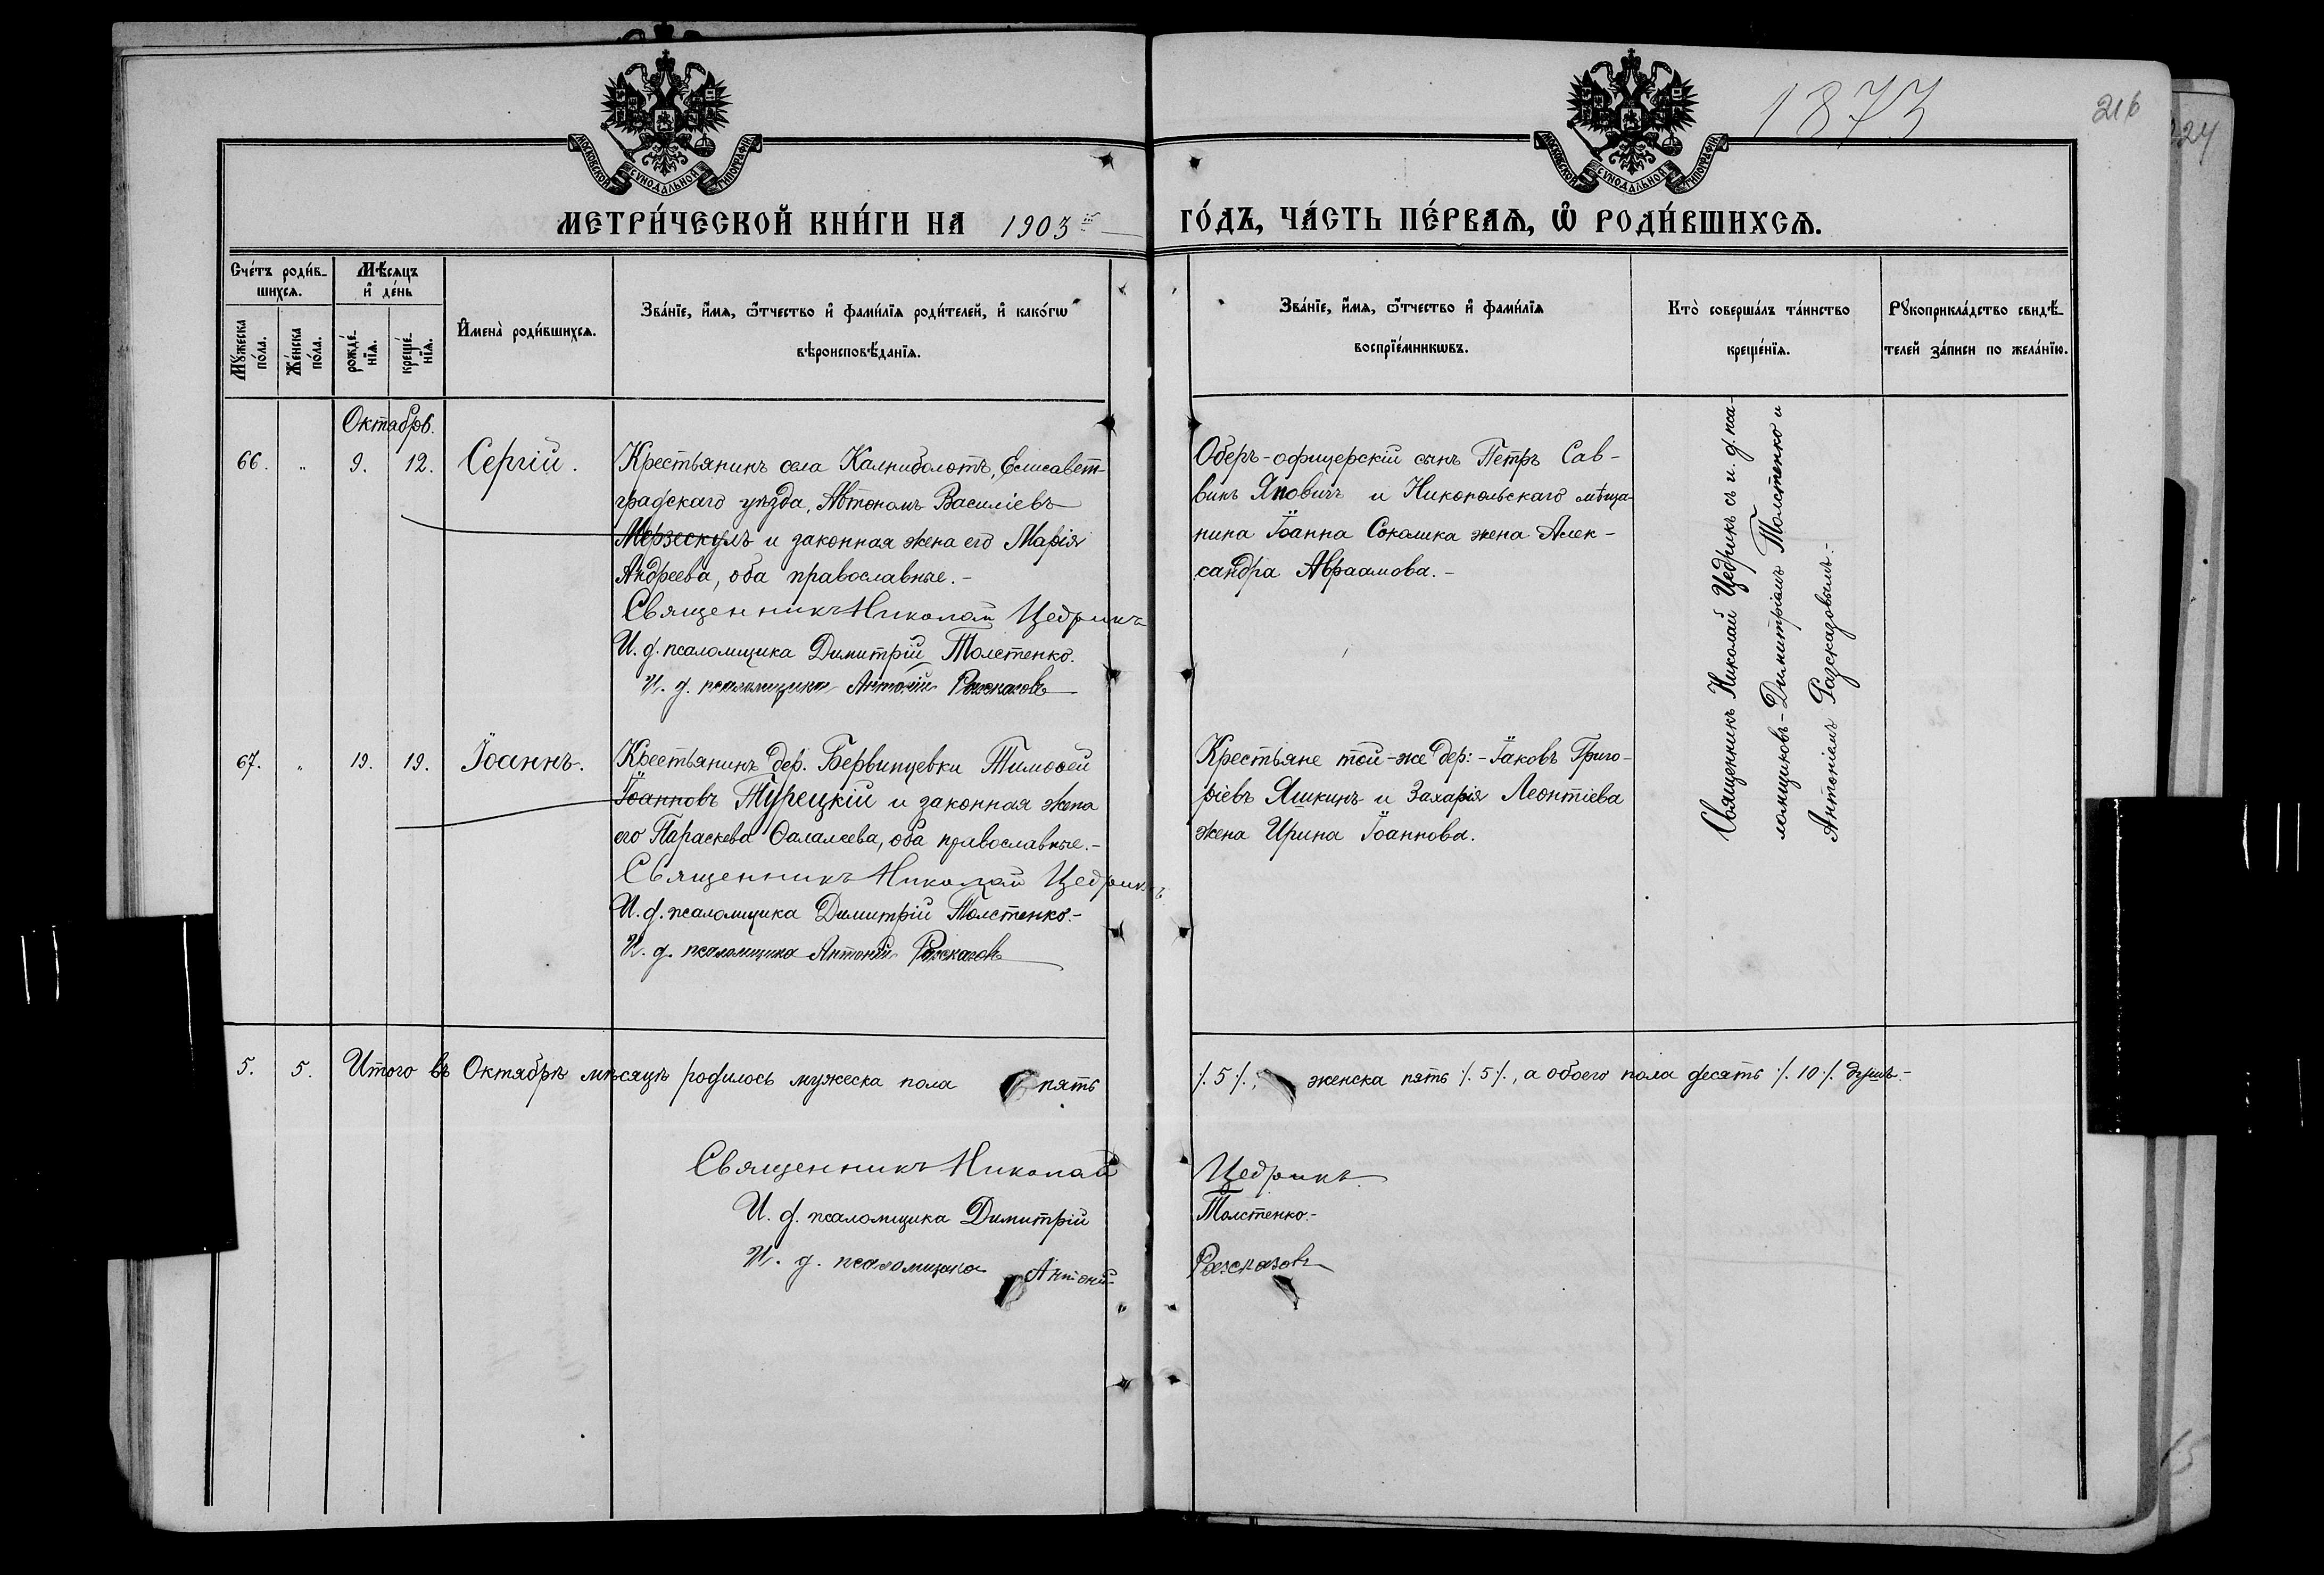 1873
216
24
МОСКОВСКОЙ СѴНОДАЛЬНОЙ ТИПОГРАФІИ
МОСКОВСКОЙ СѴНОДАЛЬНОЙ ТИПОГРАФІИ
МЕТРИ́ЧЕСКОЙ КНИ́ГИ НА 1903 й
ГО́ДЪ, ЧА́СТЬ ПЕ́РВАѦ, Ѽ РОДИ́ВШИХСѦ.
Сче́тъ роди́в-
шихсѧ.
Мꙋ́жеска
по́ла.
Же́нска
по́ла.
Мѣ́сяцъ
и҆ де́нь
рожде́-
нїѧ.
креще́-
нїѧ.
И҆мена̀ роди́вшихсѧ.
Зва́нїе, и҆́мѧ, ѻ҆́тчество и҆ фами́лїѧ роди́телей, и҆ како́гѡ
вѣроисповѣ́данїѧ.
Зва́нїе, и҆́мѧ, ѻ҆́тчество и҆ фами́лїѧ
воспрїе́мникѡвъ.
Кто̀ соверша́лъ та́инство
креще́нїѧ.
Рꙋкоприкла́дство свидѣ́-
телей за́писи по жела́нїю.
Октябрь.
66. „ 9. 12. Сергій.
Крестьянинъ села Калниболотъ, Елисавет-
градскаго уѣзда, Автономъ Василіевъ
Мерзескулъ и законная жена его Марія
Андреева, оба православные.-
Священникъ Николай Цедрикъ
И. д. псаломщика Димитрій Толстенко.
И. д. псаломщика Антоній Разсказовъ
Оберъ-офицерскій сынъ Петръ Сав-
винъ Яновичъ и Никопольскаго мѣща-
нина Іоанна Соколика жена Алек-
сандра Авраамова.-
Священникъ Николай Цедрикъ съ и. д. пса-
ломщиковъ - Димитріемъ Толстенко и
Антоніемъ Разсказовымъ.-
67. „ 19. 19. Іоаннъ.
Крестьянинъ дер. Бервинцевки Тимоѳей
Іоанновъ Турецкій и законная жена
его Параскева Ѳалалеева, оба православные.-
Священникъ Николай Цедрикъ
И. д. псаломщика Димитрій Толстенко.-
И. д. псаломщика Антоній Разсказовъ
Крестьяне той-же дер:- Іаковъ Григо-
ріевъ Яшкинъ и Захарія Леонтіева
жена Ирина Іоаннова.
5. 5. Итого въ Октябрѣ мѣсяцѣ родилось мужеска пола пять
/.5/., женска пять /.5/., а обоего пола десять /.10/. душъ.-
Священникъ Николай Цедрикъ
И. д. псаломщика Димитрій Толстенко.-
И. д. псаломщика Антоній Разсказовъ